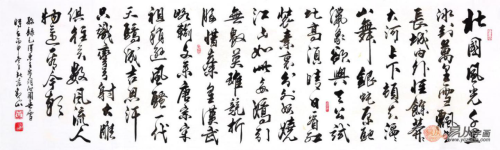 北國風光千里
冰封萬里雪飄
長城內外惟餘莽
大河上下頓失滔
山舞銀蛇原馳
蠟象欲與天公試
比高須晴日看紅
裝素裹分外妖嬈
江山如此多嬌引
無數英雄競折
腰惜秦皇漢武
略輸文采唐宗宋
祖稍遜風騷一代
天驕成吉思汗
只識彎弓射大雕
俱往矣數風流人
物還看今朝